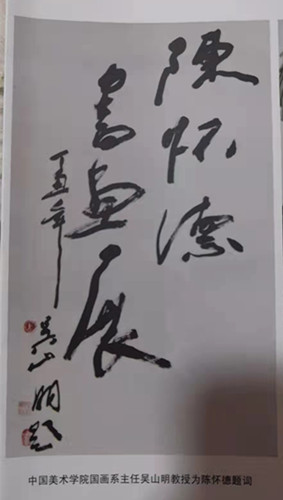 陳怀德
书画展
丁丑年
吴山明题
中国美术学院国画系主任吴山明教授为陈怀德题词